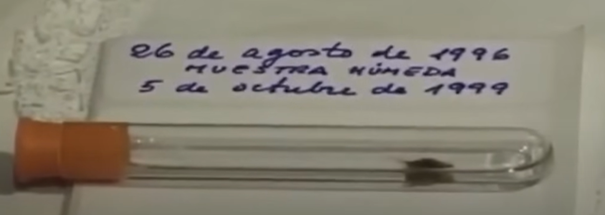 26 de agosto de 1996
MUESTRA HÚMEDA
5 de octubre de 1999